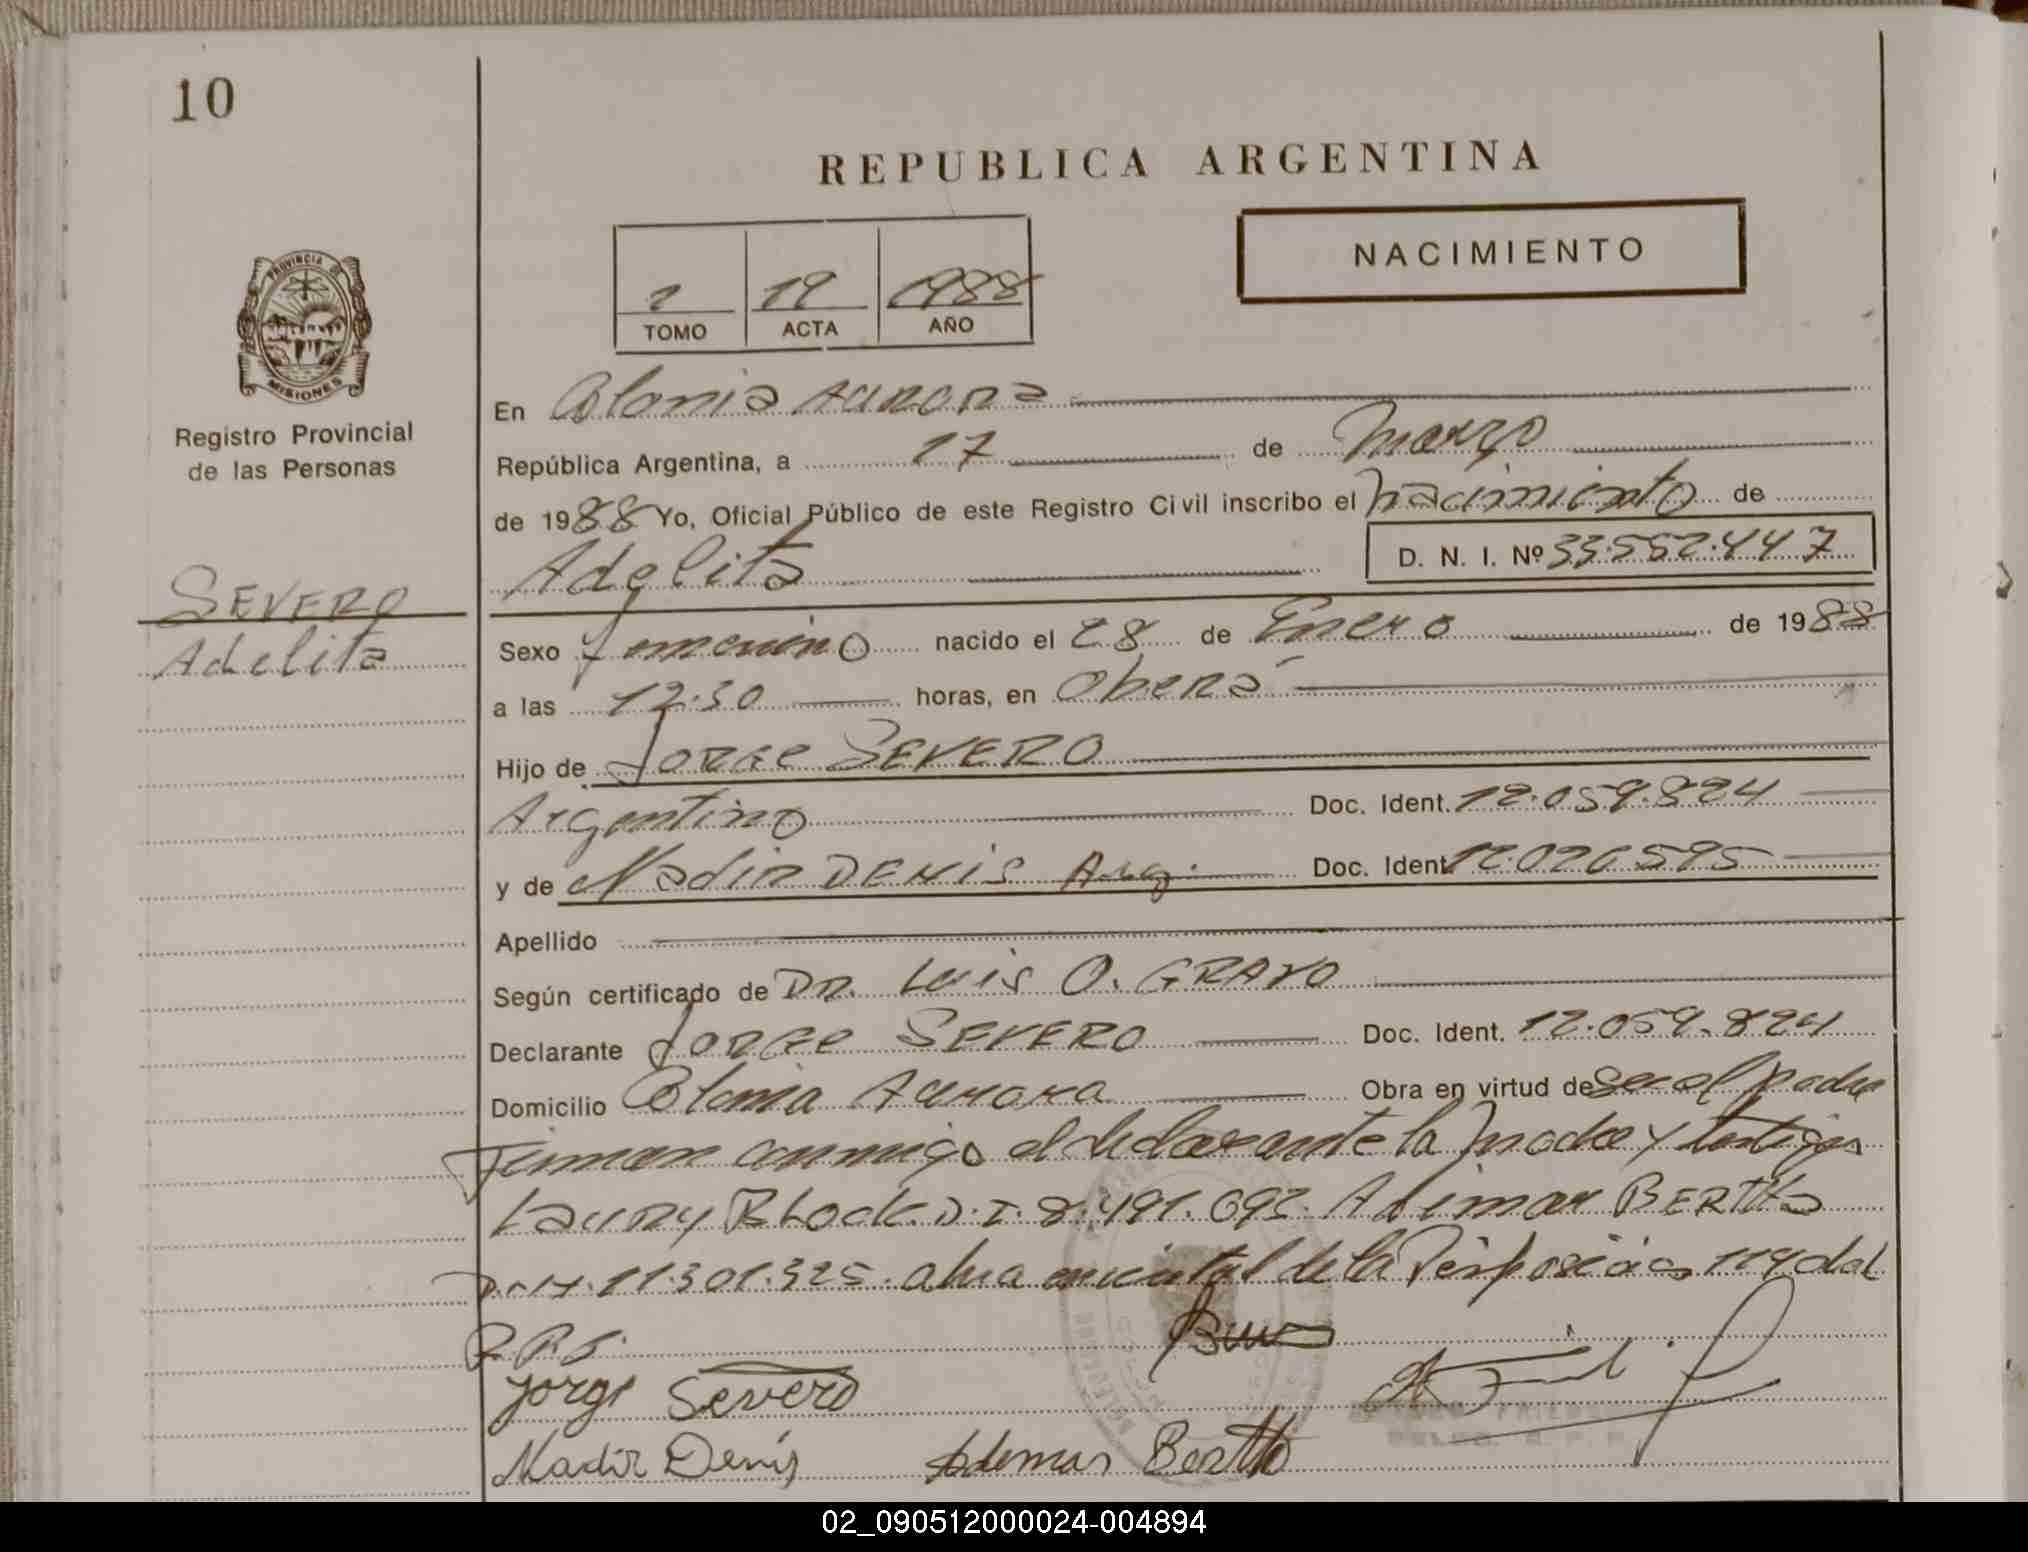 10
REPUBLICA ARGENTINA
NACIMIENTO
1 19 1988
TOMO ACTA AÑO
PROVINCIA DE
MISIONES
Registro Provincial
de las Personas
SEVERO
Adelita
En Colonia Aurora
República Argentina, a 17 de Marzo
de 1988 Yo, Oficial Público de este Registro Civil inscribo el nacimiento de
Adelita D. N. I. Nº 33.552.447
Sexo femenino nacido el 28 de Enero de 1988
a las 12.30 horas, en Oberá
Hijo de Jorge SEVERO
Argentino Doc. Ident. 12.059.824
y de Nadir DENIS Arg. Doc. Ident 12.026.595
Apellido
Según certificado de Dr. Luis O. GRAYO
Declarante Jorge SEVERO Doc. Ident. 12.059.824
Domicilio Colonia Aurora Obra en virtud de ser el padre
Firman conmigo el declarante la madre y testigos
Laury Block D.I. 8.491.093. Adimar BERTTO
11.301.325. de la Disposición 114 del
R.P.S.
Jorge Severo
Nadir Denis Ademar Bertto
02_090512000024-004894